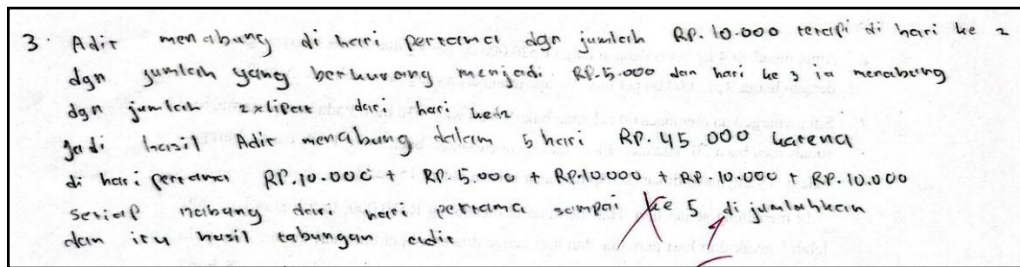 3. Adit menabung di hari pertama dgn jumlah RP. 10.000 tetapi di hari ke 2
dgn jumlah yang berkurang menjadi RP. 5.000 dan hari ke 3 ia menabung
dgn jumlah 2xlipat dari hari ke2
Jadi hasil Adit menabung dalam 5 hari RP. 45.000 karena
di hari pertama RP.10.000 + RP. 5.000 + RP.10.000 + RP.10.000 + RP. 10.000
setiap nabung dari hari pertama sampai ke 5 di jumlahkan
dan itu hasil tabungan adit